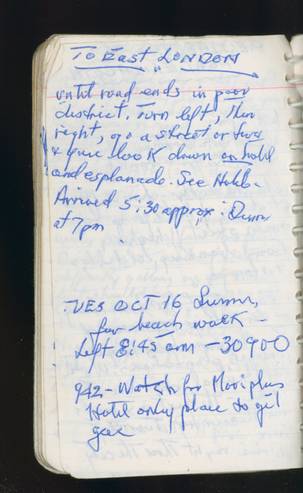 To East London
until road ends in poor
district. Turn left, then
right, go a street or two
& you look down on hotel
and esplanade. See Hobb-
Arrived 5:30 approx: Dinner
at 7pm
TUES OCT 16 Sunny,
few beach walk -
Left 8:45 am - 30900
942 - Watch for Mooi plus
Hotel only place to git
gas